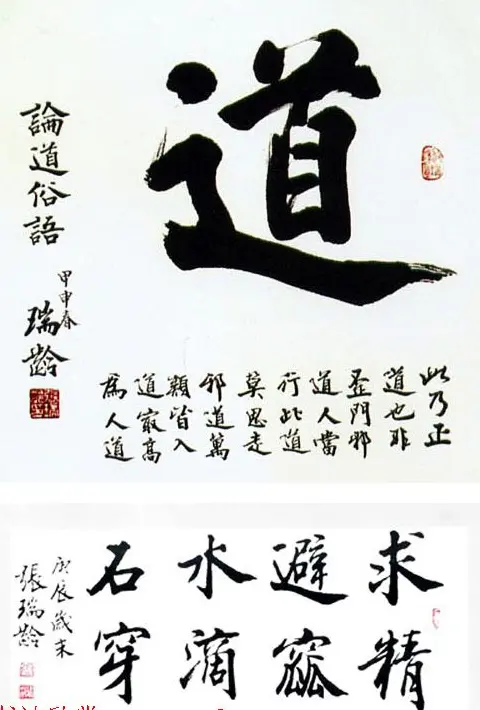 道
此乃正
道也非
歪門邪
道人噹
行此道
莫思走
邪道萬
類皆入
道最高
為人道
論道俗語
甲申春
瑞齡
求精
避窳
水滴
石穿
庚辰歲末
張瑞齡